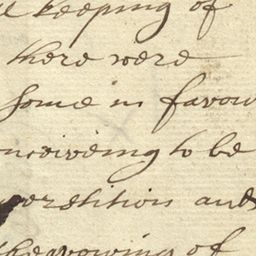 keeping of
there were
some in favour
conceiveing to be
perstition and
the avowing of